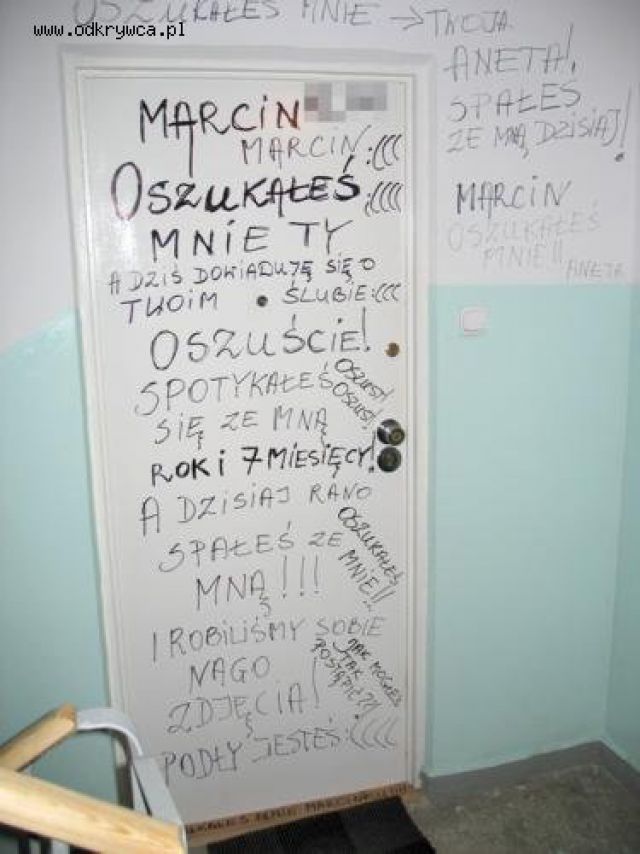 OSZUKAŁEŚ MNIE → TWOJA
www.odkrywca.pl
ANETA!
SPAŁEŚ
ZE MNĄ DZISIAJ!
MARCIN
OSZUKAŁEŚ
MNIE!!
ANETA
MARCIN
MARCIN :(((
OSZUKAŁEŚ :((((
MNIE TY
A DZIŚ DOWIADUJĘ SIĘ O
TWOIM ŚLUBIE :(((
OSZUŚCIE!
SPOTYKAŁEŚ
OSZUST!
OSZUST!
SIĘ ZE MNĄ
ROK I 7 MIESIĘCY!
A DZISIAJ RANO
SPAŁEŚ ZE
MNĄ!!!
OSZUKAŁEŚ
MNIE!!
I ROBILIŚMY SOBIE
NAGO
ZDJĘCIA!
JAK MOGŁEŚ
TAK
POSTĄPIĆ??!
PODŁY JESTEŚ :((((